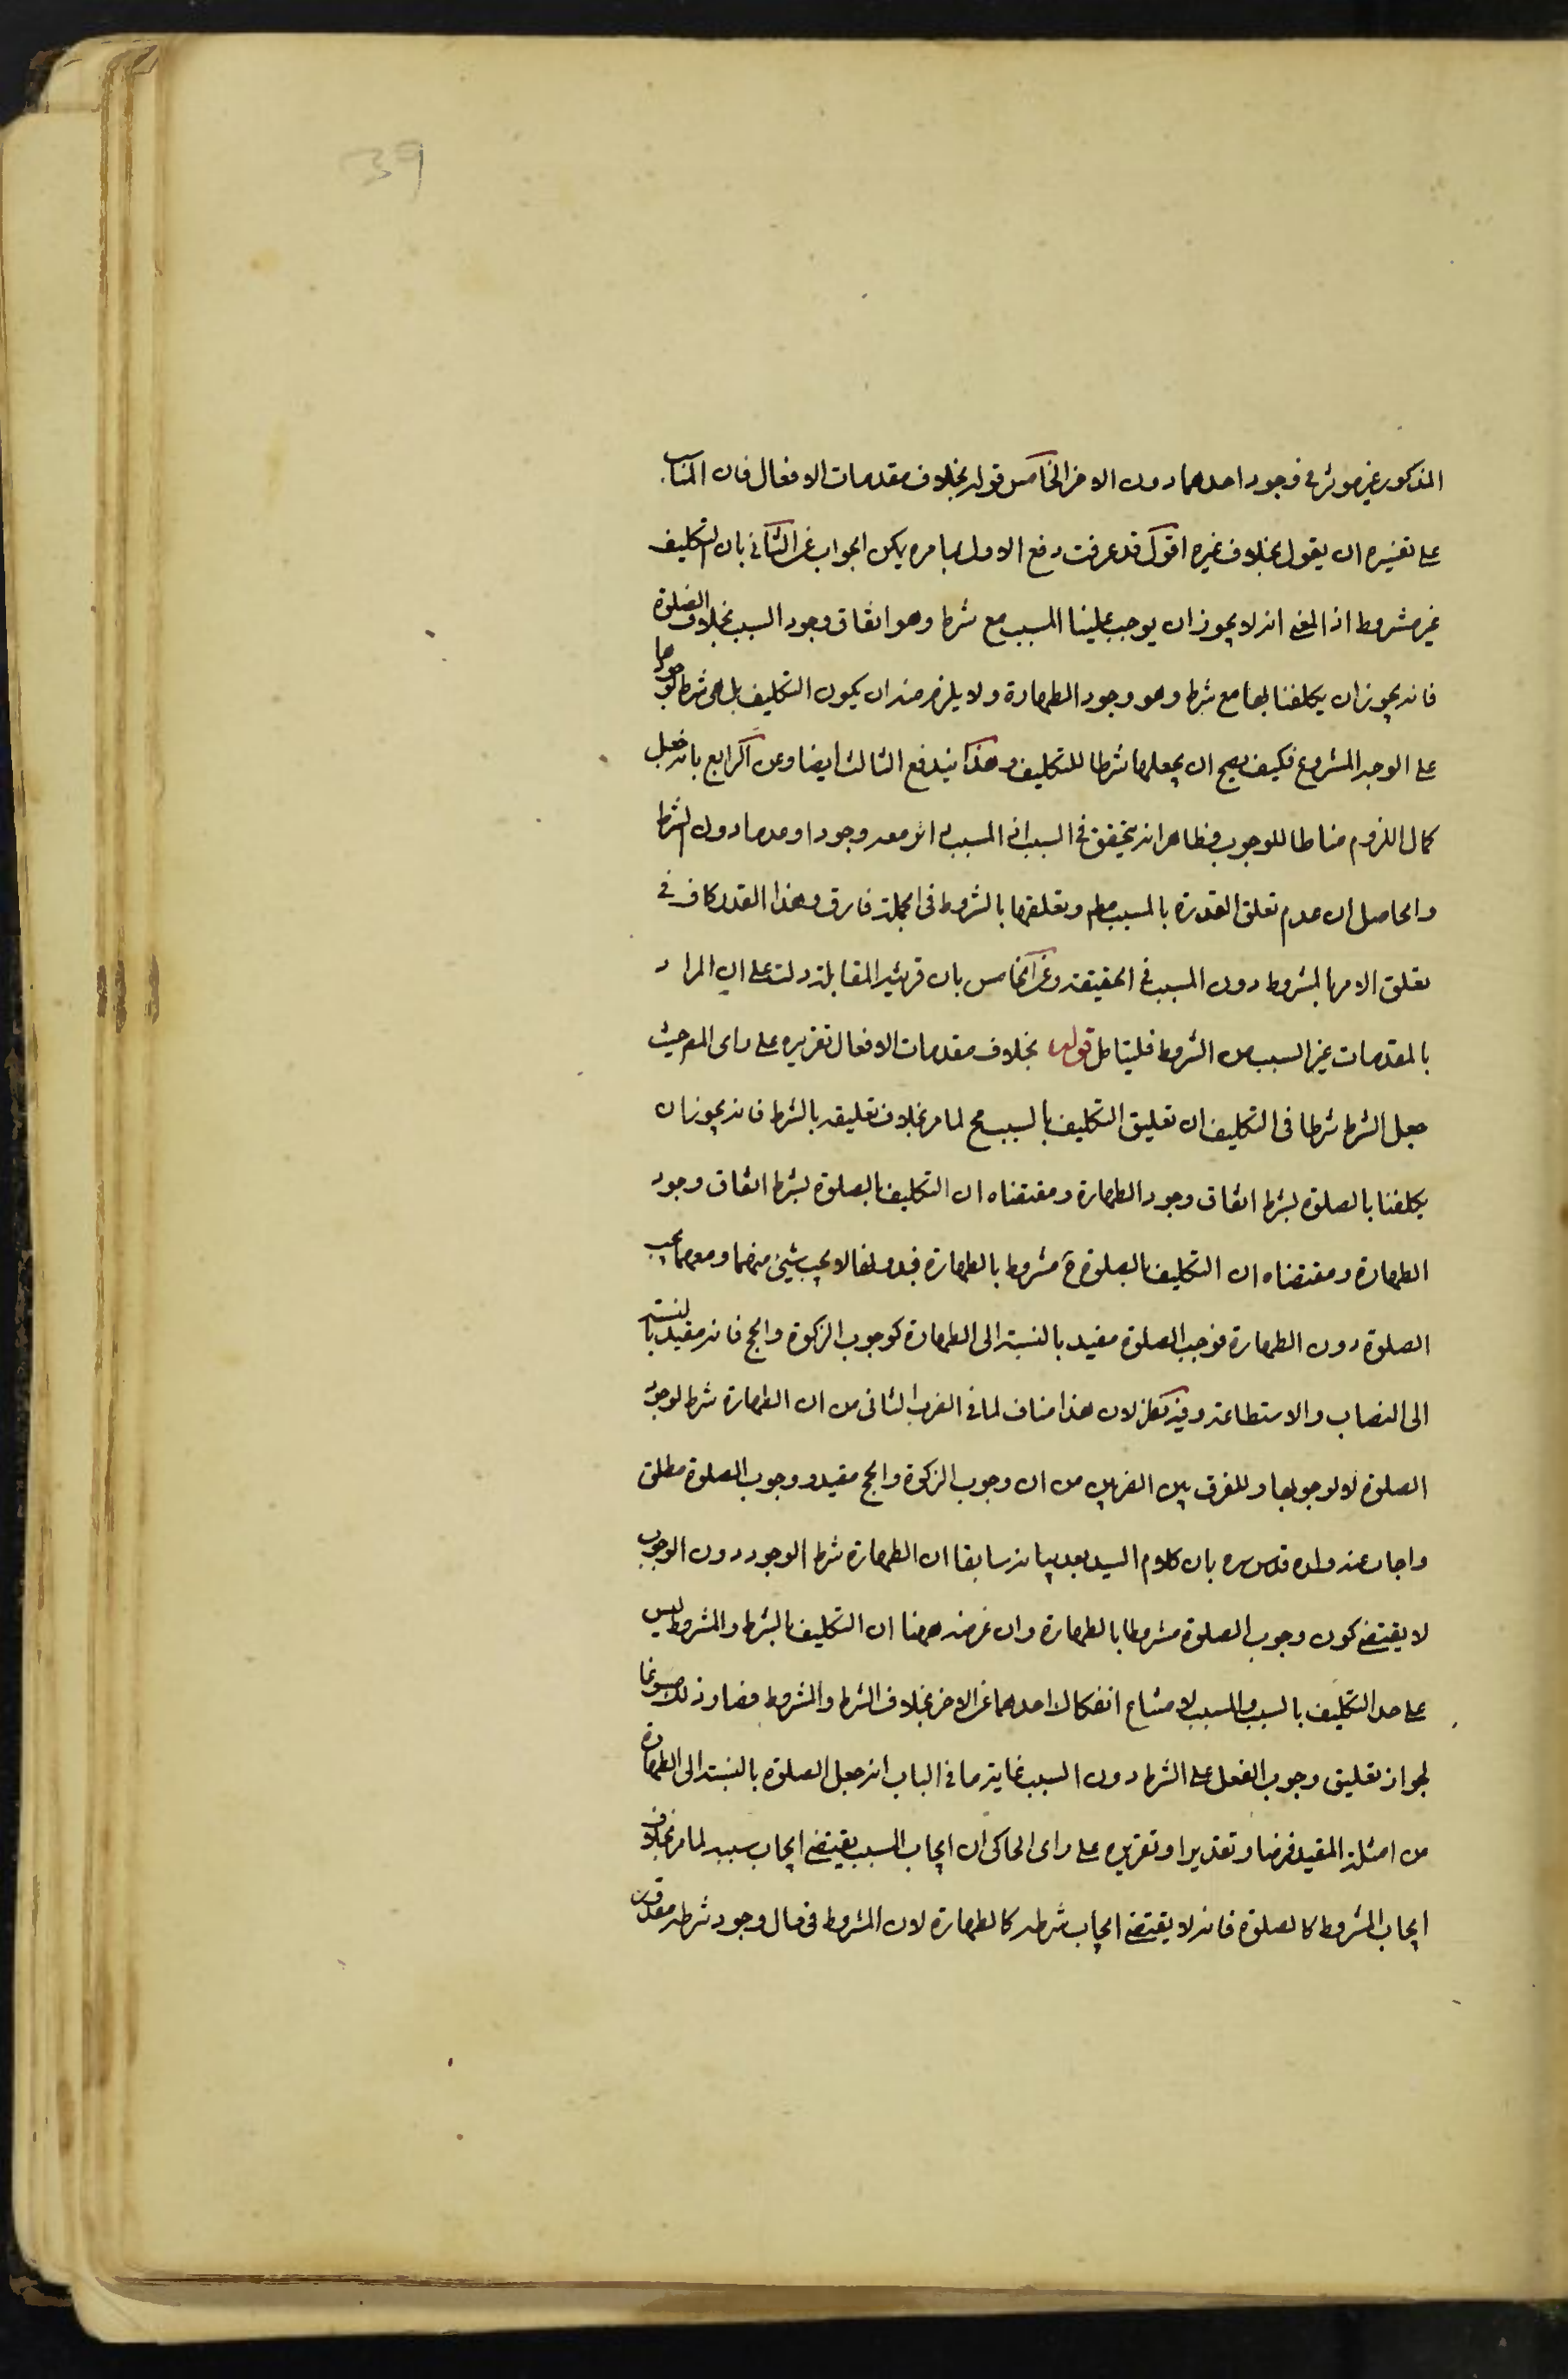 39
المذكور غير موثر في وجود احدهما دون الاخر الخامس قوله بخلاف مقدمات الافعال فان المناسب
على تفسيره ان يقول بخلاف غيره اقول قد عرفت دفع الاول بما مر ويمكن الجواب عن الثاني بان التكليف
غير مشروط اذ المعنى انه لا يجوز ان يوجب علينا المسبب مع شرط وهو اتفاق وجود السبب بخلاف الصلوة
فانه يجوز ان يكلفنا بها مع شرط وهو وجود الطهارة ولا يلزم منه ان يكون التكليف بل هى شرط لوجودها
على الوجه المشروع فكيف يصح ان يجعلها شرطا للتكليف وبهذا يندفع الثالث ايضا وعن الرابع بانه جعل
كمال اللزوم مناطا للوجوب وظاهر انه يتحقق في السبب اذ المسبب اثر معه وجودا وعدما دون الشرط
والحاصل ان عدم تعلق القدرة بالمسبب مطم وتعلقها بالشروط فى الجملة فارق وهذا القدر كاف في
تعلق الامر بالمشروط دون المسبب في الحقيقة وعن الخامس بان قرينة المقابلة دلت على ان المراد
بالمقدمات غير السبب من الشروط فليتامل قوله بخلاف مقدمات الافعال تقريره على راى المص حيث
جعل الشرط شرطا فى التكليف ان تعليق التكليف بالسبب مح لما مر بخلاف تعليقه بالشرط فانه يجوز ان
يكلفنا بالصلوة بشرط اتفاق وجود الطهارة ومقتضاه ان التكليف بالصلوة بشرط اتفاق وجود
الطهارة ومقتضاه ان التكليف بالصلوة ح مشروط بالطهارة فبدونها لا يجب شيئ منهما ومعها يجب
الصلوة دون الطهارة فوجب الصلوة مقيد بالنسبة الى الطهارة كوجوب الزكوة والحج فانه مقيد بالنسبة
الى النصاب والاستطاعة وفيه نظر لان هذا مناف لما في الضرب الثانى من ان الطهارة شرط لوجود
الصلوة لا لوجوبها وللفرق بين الضربين من ان وجوب الزكوة والحج مقيد ووجوب الصلوة مطلق
واجاب عنه ولده قدس سره بان كلام السيد بعد بيانه سابقا ان الطهارة شرط الوجود دون الوجوب
لا يقتضى كون وجوب الصلوة مشروطا بالطهارة وان غرضه ههنا ان التكليف بالشرط والمشروط ليس
على حد التكليف بالسبب والمسبب لامتناع انفكاك احدهما عن الاخر بخلاف الشرط والمشروط فصار ذلك مسوغا
لجواز تعليق وجوب الفعل على الشرط دون السبب غاية ما فى الباب انه جعل الصلوة بالنسبة الى الطهارة
من امثلة المقيد فرضا وتقديرا وتقريره على راى الحاكى ان ايجاب المسبب يقتضى ايجاب سببه لما مر بخلاف
ايجاب المشروط كالصلوة فانه لا يقتضى ايجاب شرطه كالطهارة لان المشروط فى حال وجود شرطه مقدور